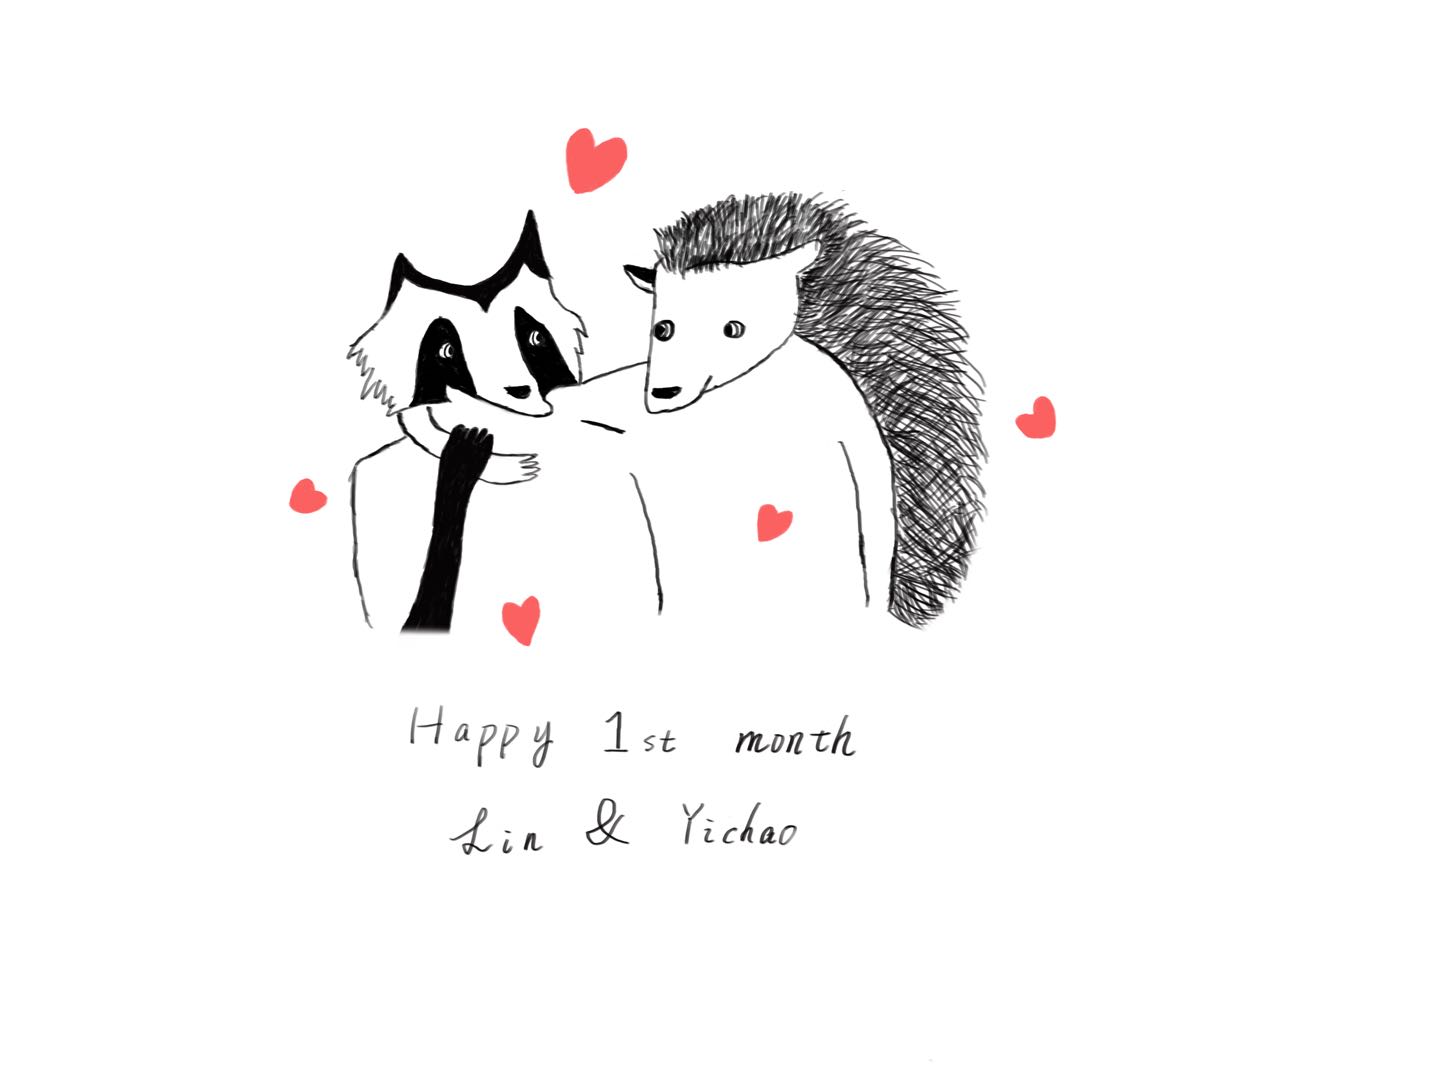 Happy 1st month
Lin & Yichao